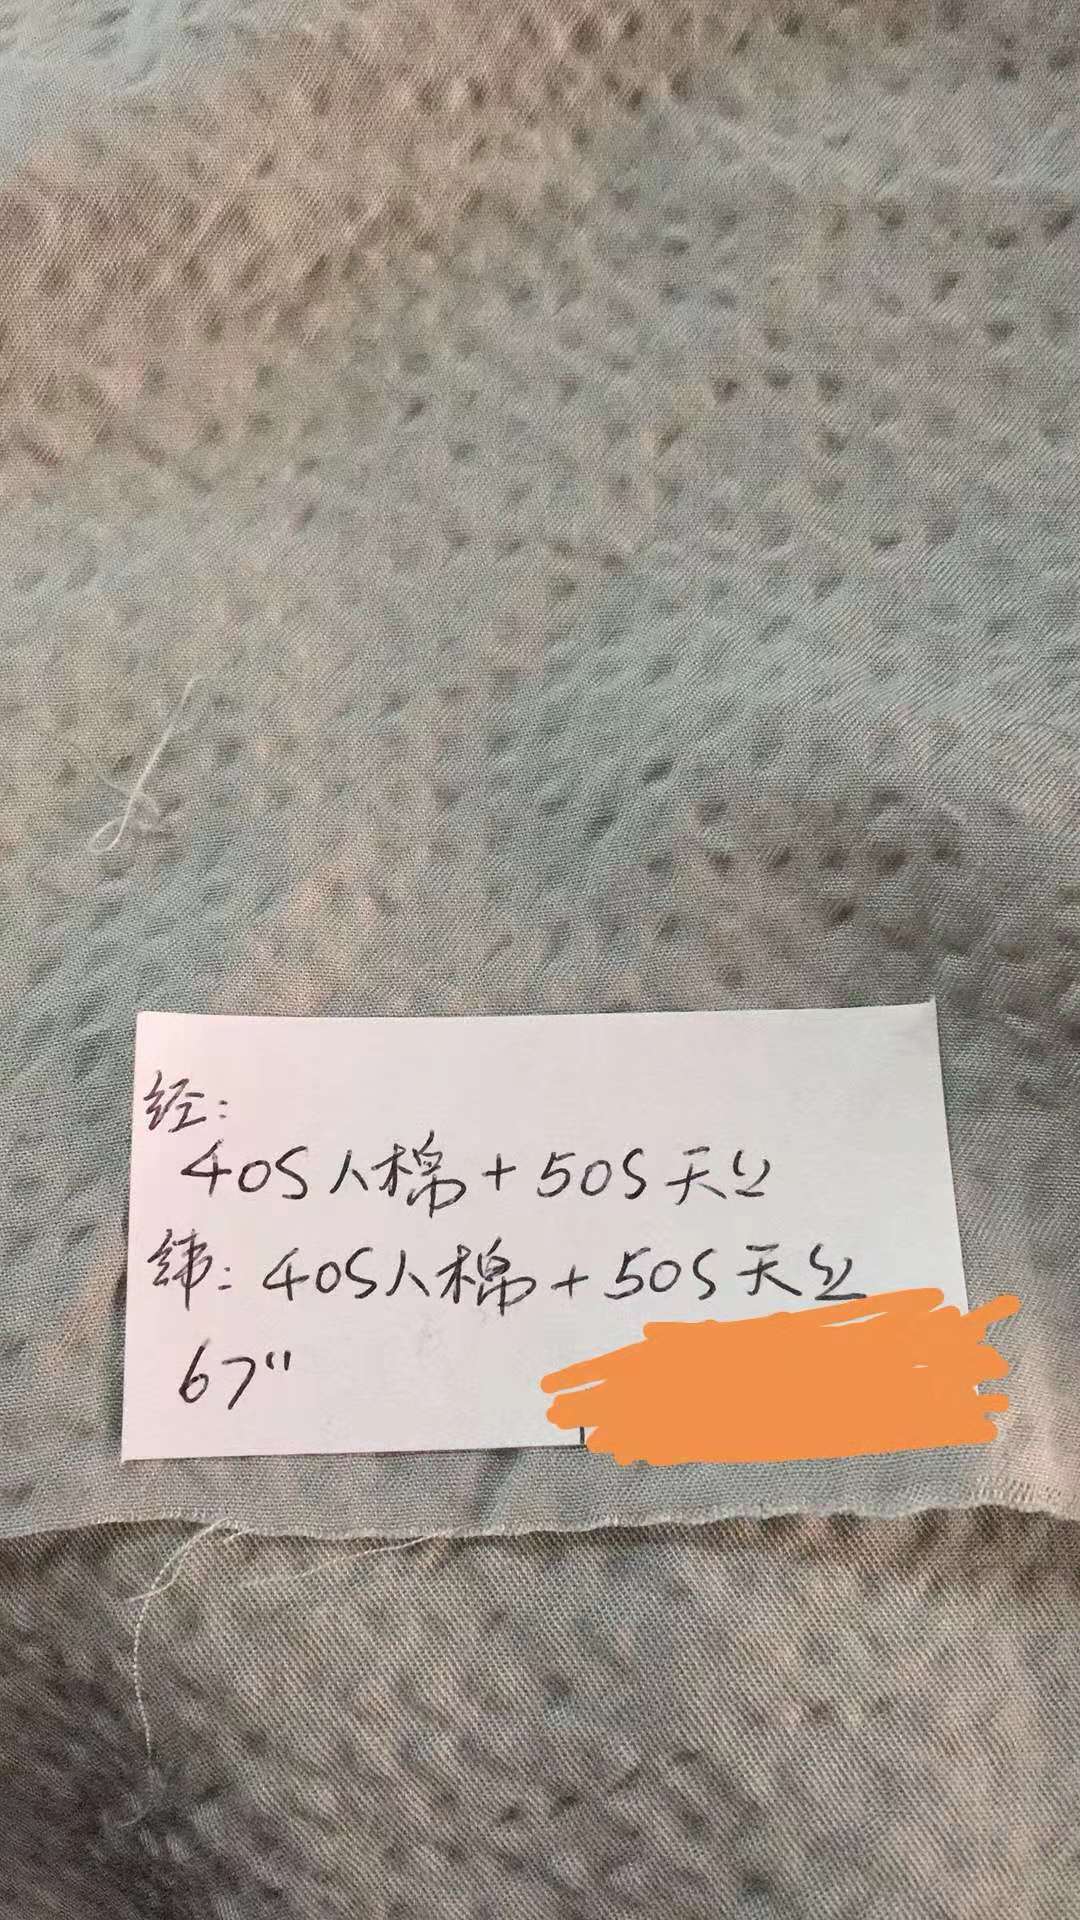 经:
40S人棉+50S天丝
纬:40S人棉+50S天丝
67"